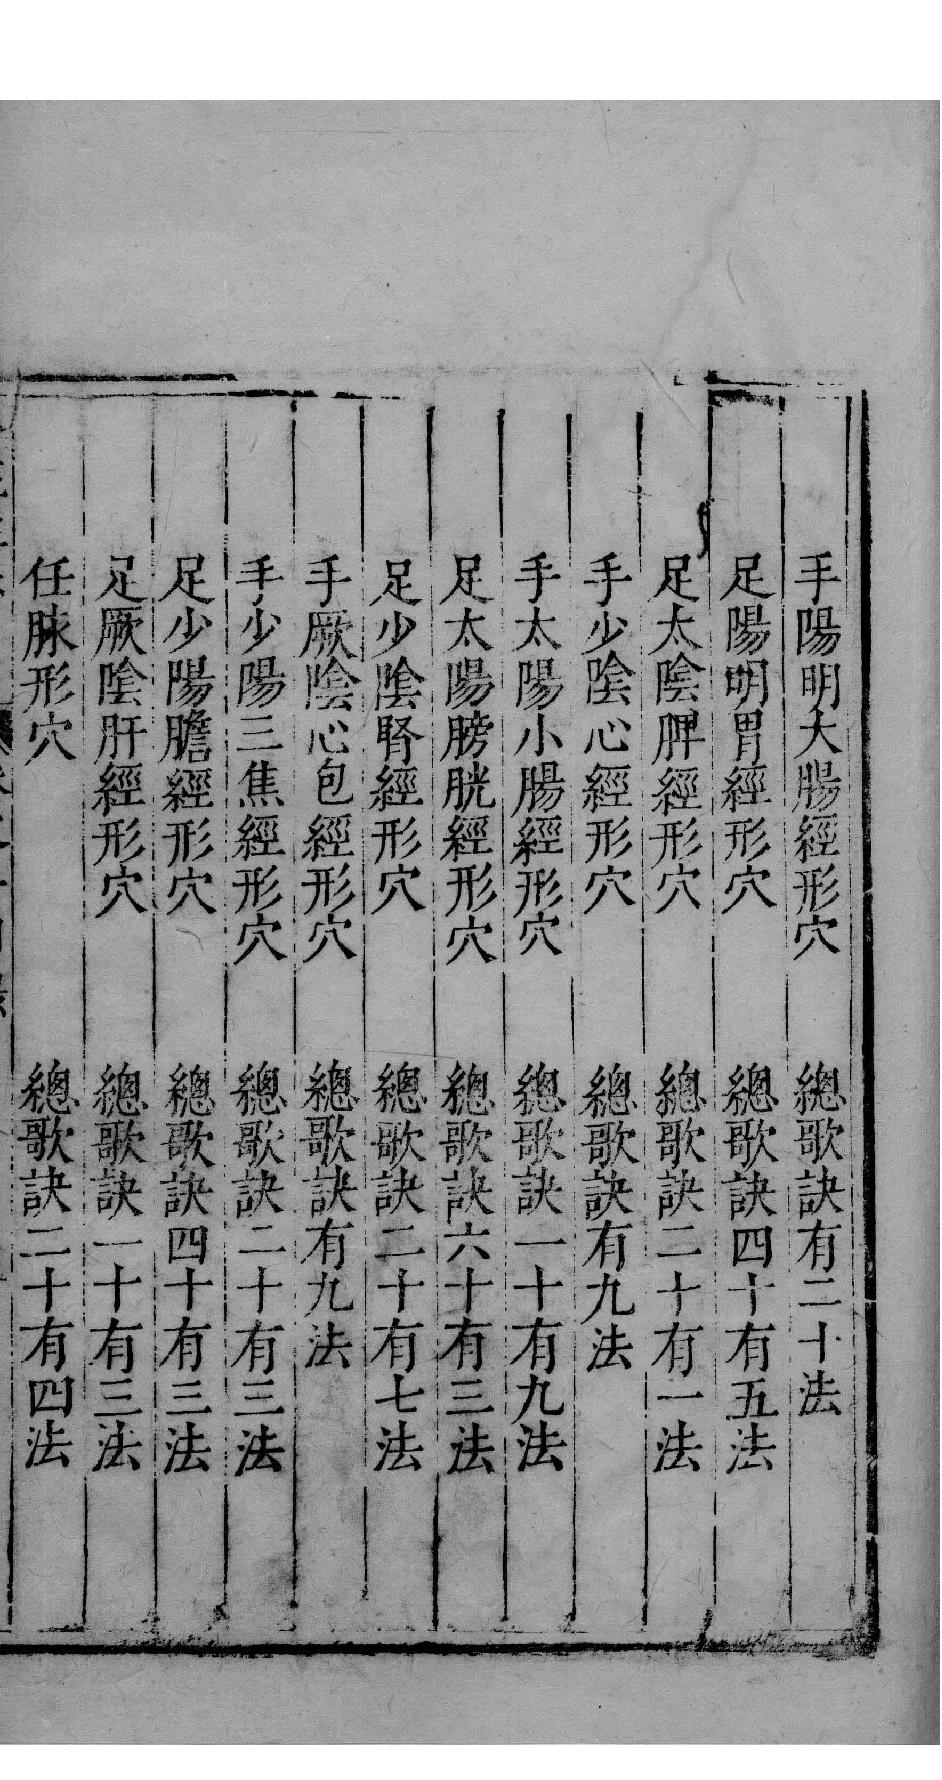 手陽明大腸經形穴　總歌訣有二十法
足陽明胃經形穴　總歌訣四十有五法
足太陰脾經形穴　總歌訣二十有一法
手少陰心經形穴　總歌訣有九法
手太陽小腸經形穴　總歌訣一十有九法
足太陽膀胱經形穴　總歌訣六十有三法
足少陰腎經形穴　總歌訣二十有七法
手厥陰心包經形穴　總歌訣有九法
手少陽三焦經形穴　總歌訣二十有三法
足少陽膽經形穴　總歌訣四十有三法
足厥陰肝經形穴　總歌訣一十有三法
任脉形穴　總歌訣二十有四法